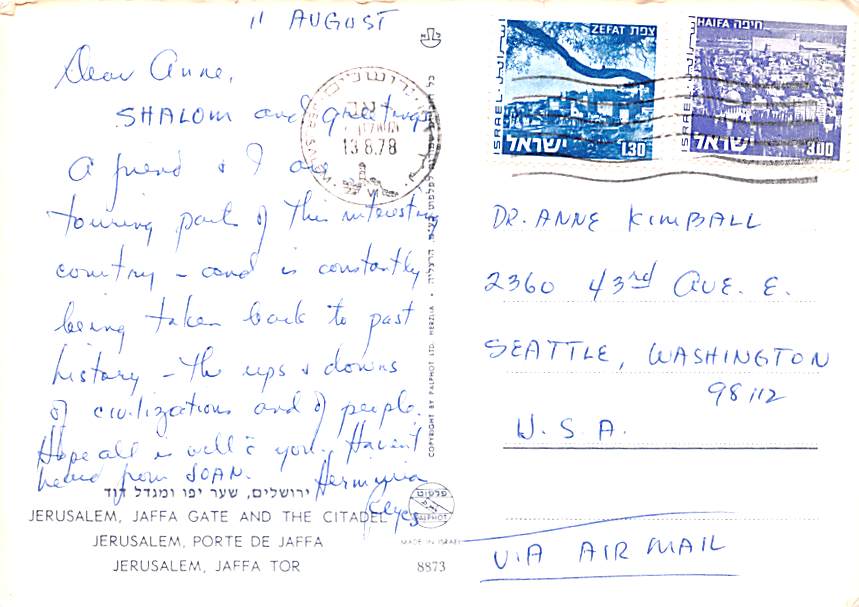 11 AUGUST
Dear Anne,
SHALOM and greetings
A friend & I are
touring part of this interesting
country – and is constantly
being taken back to past
history – the ups & downs
of civilizations and of people.
Hope all is well c̄ you. Haven't
heard from JOAN. Hermynia
Reyes
ירושלים, שער יפו ומגדל דוד
JERUSALEM, JAFFA GATE AND THE CITADEL
JERUSALEM, PORTE DE JAFFA
JERUSALEM, JAFFA TOR
8873
MADE IN ISRAEL
פלפוט
PALPHOT
COPYRIGHT BY PALPHOT LTD. HERZLIA
ירושלים
13.8.78
ISRAEL
ZEFAT צפת
ישראל 1.30
ISRAEL
HAIFA חיפה
ישראל 3.00
DR. ANNE KIMBALL
2360 43rd AVE. E.
SEATTLE, WASHINGTON
98112
U.S.A.
VIA AIR MAIL